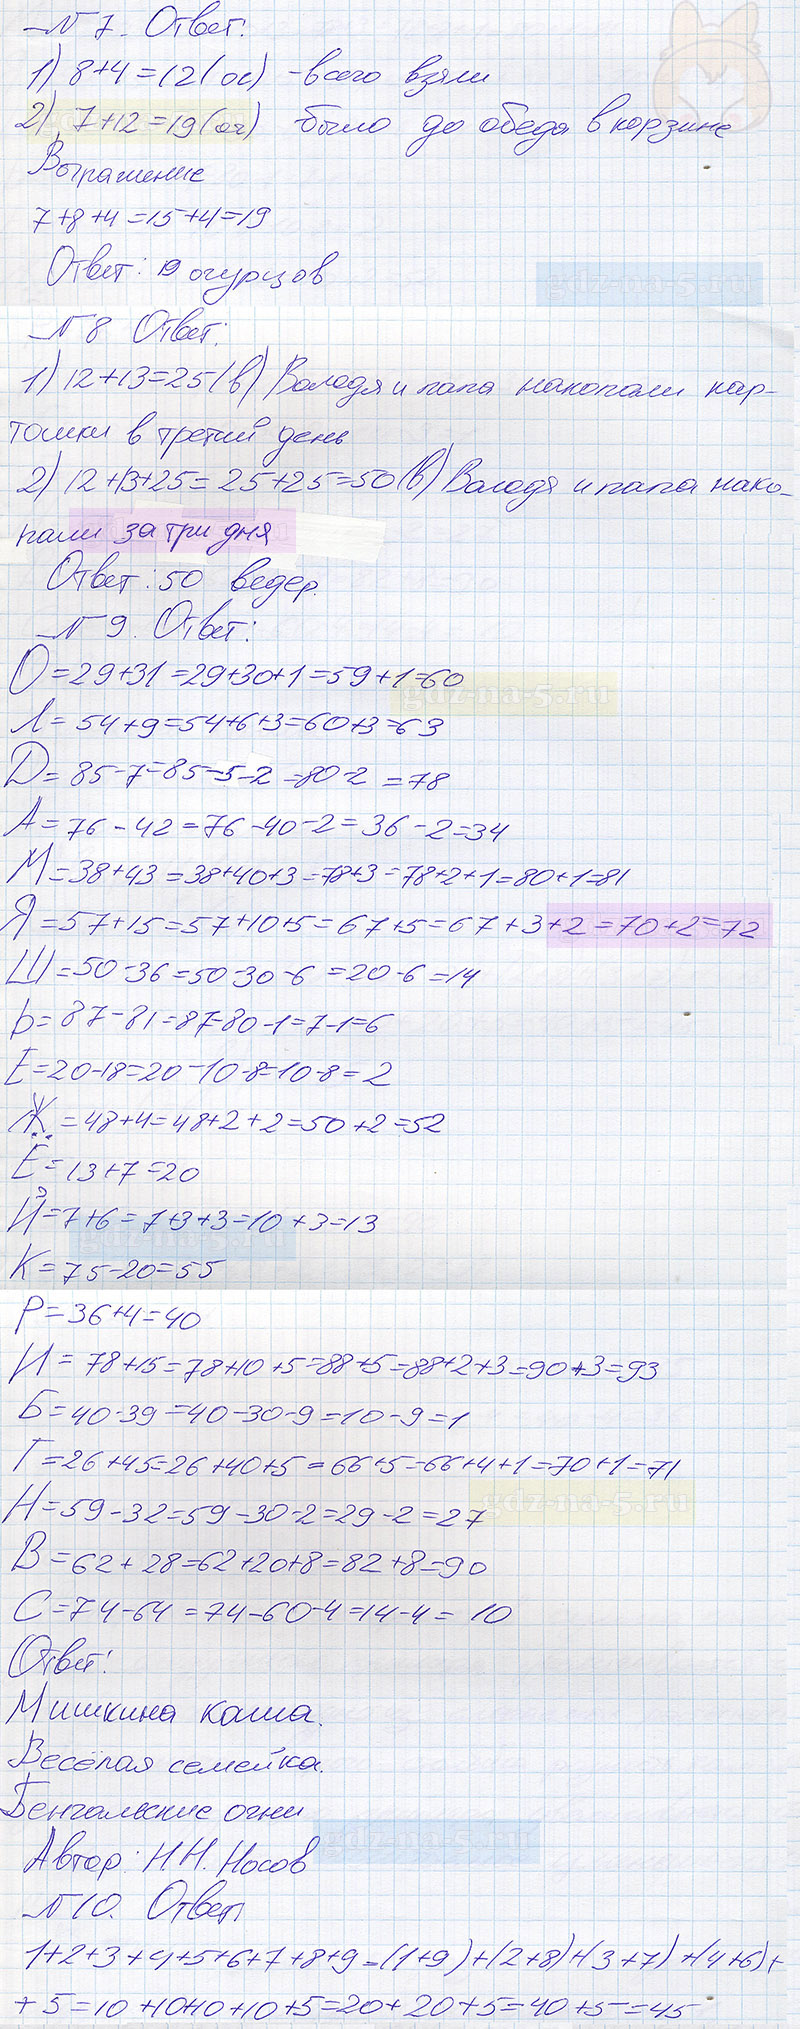 №7. Ответ.
1) 8+4=12(ог) -всего взяли
2) 7+12=19(ог) -было до обеда в корзине
Выражение
7+8+4=15+4=19
Ответ: 19 огурцов
gdz-na-5.ru
№8 Ответ:
1) 12+13=25(в) Володя и папа накопали кар-
тошки в третий день
2) 12+13+25=25+25=50(в) Володя и папа нако-
пали за три дня
Ответ: 50 ведер.
№9. Ответ:
О=29+31=29+30+1=59+1=60
gdz-na-5.ru
Л=54+9=54+6+3=60+3=63
Д=85-7=85-5-2=80-2=78
А=76-42=76-40-2=36-2=34
М=38+43=38+40+3=78+3=78+2+1=80+1=81
Я=57+15=57+10+5=67+5=67+3+2=70+2=72
Ш=50-36=50-30-6=20-6=14
Ь=87-81=87-80-1=7-1=6
Е=20-18=20-10-8=10-8=2
Ж=48+4=48+2+2=50+2=52
Ё=13+7=20
Й=7+6=7+3+3=10+3=13
К=75-20=55
Р=36+4=40
И=78+15=78+10+5=88+5=88+2+3=90+3=93
Б=40-39=40-30-9=10-9=1
Г=26+45=26+40+5=66+5=66+4+1=70+1=71
Н=59-32=59-30-2=29-2=27
gdz-na-5.ru
В=62+28=62+20+8=82+8=90
С=74-64=74-60-4=14-4=10
Ответ:
Мишкина каша.
Весёлая семейка.
Бенгальские огни
gdz-na-5.ru
Автор: Н.Н. Носов
№10. Ответ
1+2+3+4+5+6+7+8+9=(1+9)+(2+8)+(3+7)+(4+6)+
+5=10+10+10+10+5=20+20+5=40+5=45